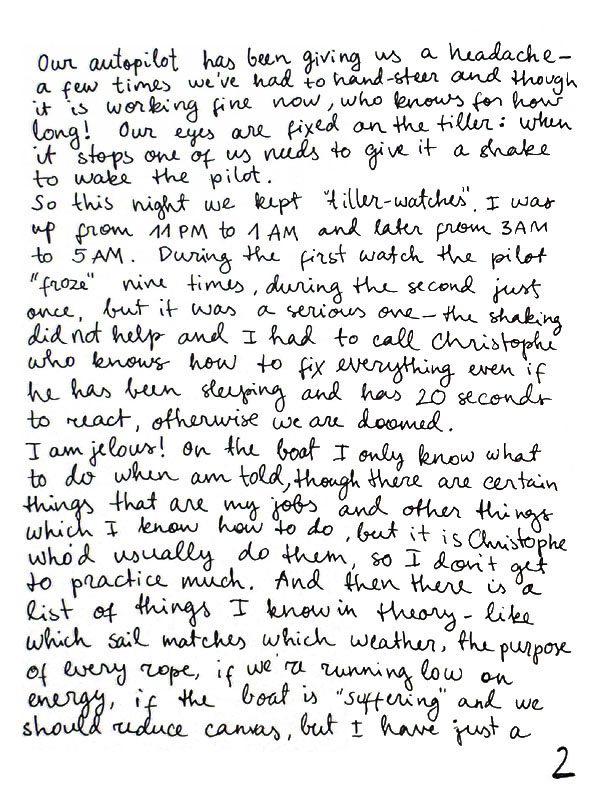 Our autopilot has been giving us a headache -
a few times we've had to hand-steer and though
it is working fine now, who knows for how
long! Our eyes are fixed on the tiller: when
it stops one of us needs to give it a shake
to wake the pilot.
So this night we kept "tiller-watches". I was
up from 11PM to 1AM and later from 3AM
to 5AM. During the first watch the pilot
"froze" nine times, during the second just
once, but it was a serious one - the shaking
did not help and I had to call Christophe
who knows how to fix everything even if
he has been sleeping and has 20 seconds
to react, otherwise we are doomed.
I am jelous! On the boat I only know what
to do when am told, though there are certain
things that are my jobs and other things
which I know how to do, but it is Christophe
who'd usually do them, so I don't get
to practice much. And then there is a
list of things I know in theory - like
which sail matches which weather, the purpose
of every rope, if we're running low on
energy, if the boat is "suffering" and we
should reduce canvas, but I have just a
2